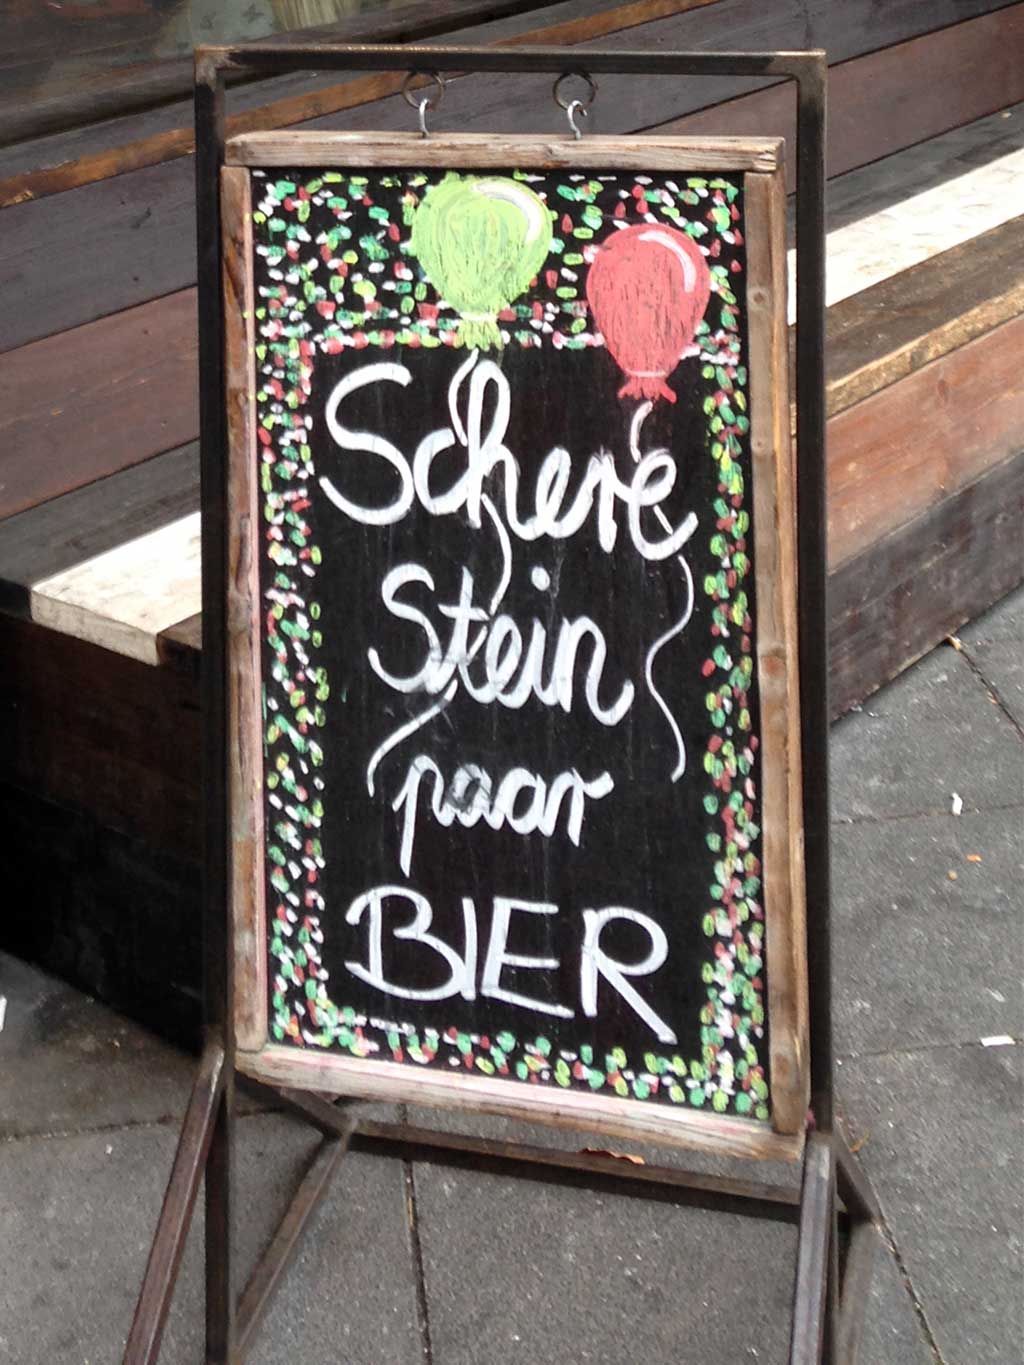 Schere
Stein
paar
BIER